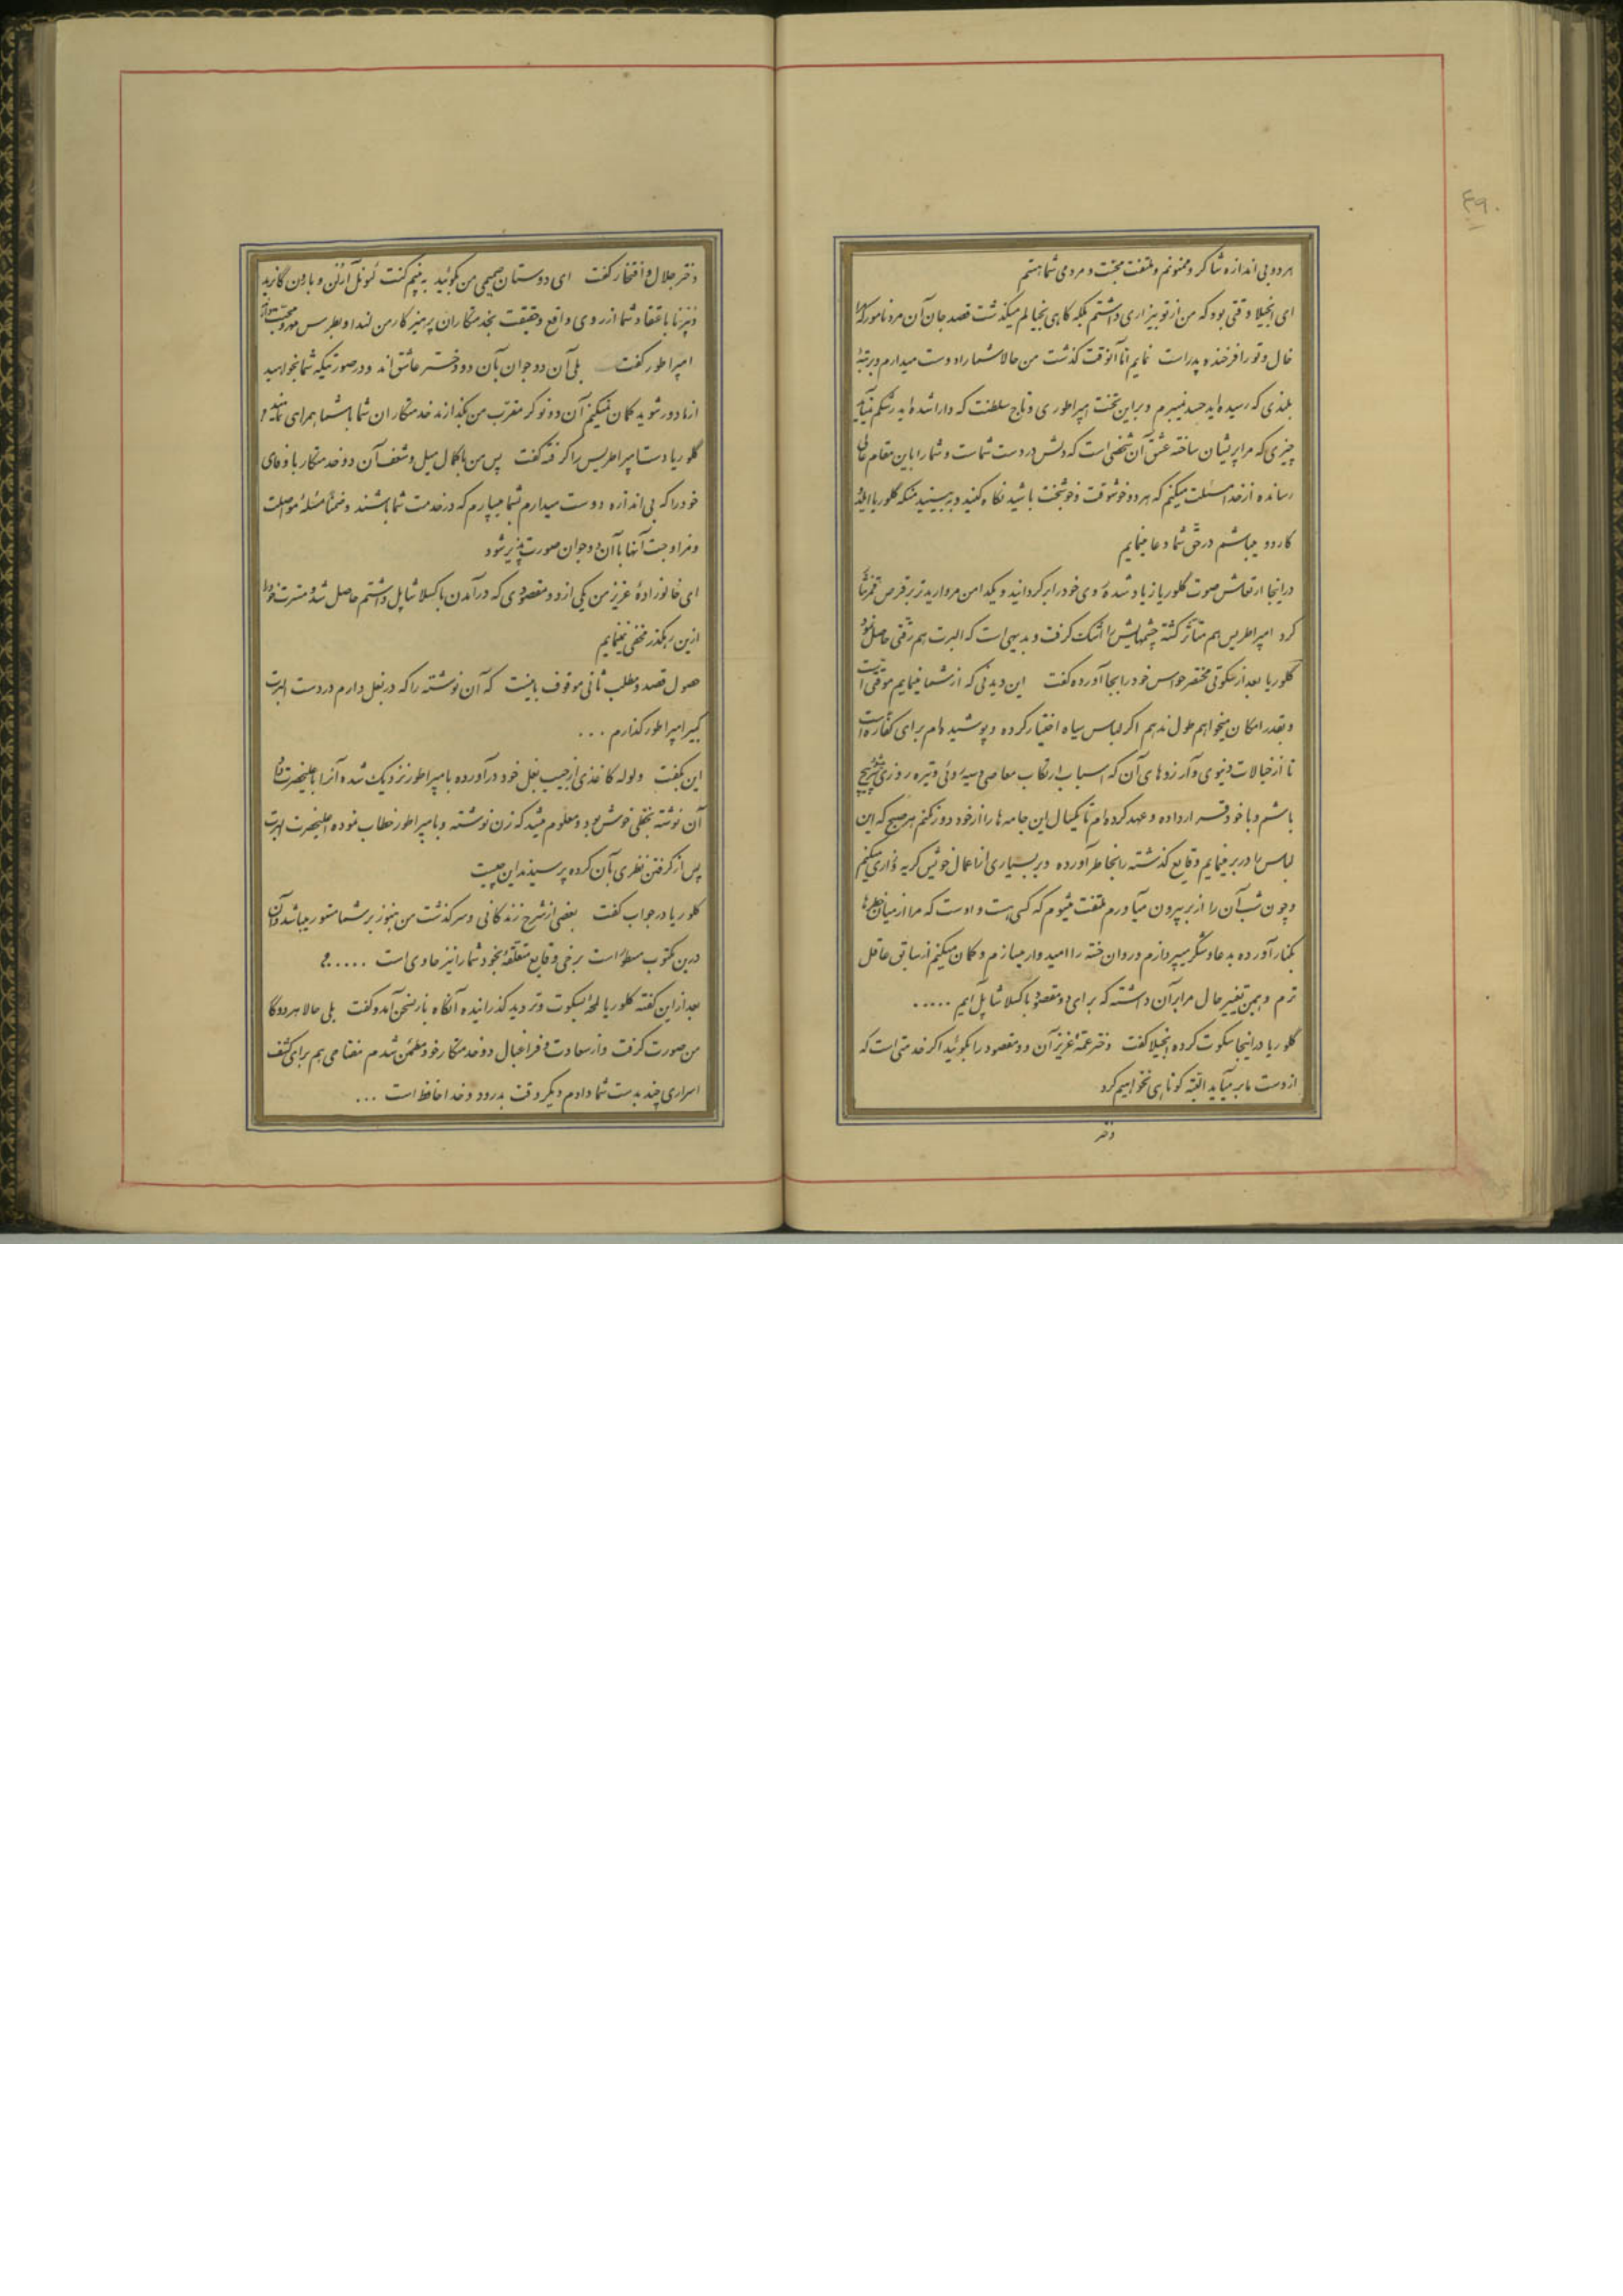 ۴۹۰
هر دو بی اندازه شاکر و ممنونم و ملتفت محبت و مردمی شما هستم
ای انجیلا وقتی بود که من از تو بیزاری داشتم بلکه گاهی بخیالم میگذشت قصد جان آن مرد نامور را که
خال و تو را فرخنده پدر است نمایم اما آنوقت گذشت من حالا شما را دوست میدارم و بر رتبهٔ
بلندی که رسیده اید حسد نمیبرم و بر این تخت امپراطوری و تاج سلطنت که دارا شده اید رشکم نمیآید
چیزی که مرا پریشان ساخته عشق آن شخصی است که دلش در دست شماست و شما را باین مقام عالی
رسانده از خدا مسئلت میکنم که هر دو خوشوقت و خوشبخت باشید نگاه کنید و ببینید منکه گلوریا
کاردو میباشم در حق شما دعا مینمایم
در اینجا ارتعاش صوت گلوریا زیاد شده روی خود را برگردانید و یکدامن مروارید تر بر قرص قمر نثار
کرد امپراطریس هم متأثر گشته چشمهایش را اشک گرفت و بدیهی است که البرت هم رقتی حاصل نمود
گلوریا بعد از سکوتی مختصر حواس خود را بجا آورده گفت این دیدنی که از شما مینمایم موقتی است
و بقدر امکان میخواهم طول ندهم اگر لباس سیاه اختیار کرده و پوشیده ام برای کفاره است
تا از خیالات دنیوی و آرزوهای آن که اسباب ارتکاب معاصی و سیه روئی و تیره روزی
باشم و با خود قسم قرار داده و عهد کرده ام تا یکسال این جامه ها را از خود دور نکنم هر صبح که این
لباس را در بر مینمایم وقایع گذشته را بخاطر آورده و بر بسیاری از اعمال خویش گریه و زاری میکنم
و چون شب آن را از بر بیرون میآورم ملتفت میشوم که کسی هست و اوست که مرا از میان خطرها
بکنار آورده بدعا و شکر میپردازم و روان خسته را امیدوار میسازم و گمان میکنم از سابق عاقل
ترم و همین تغییر حال مرا بر آن داشته که برای دو مقصود باکسلا شاپل آیم .....
گلوریا در اینجا سکوت کرده انجیلا گفت دختر عمهٔ عزیز آن دو مقصود را بگوئید اگر خدمتی است که
از دست ما بر میآید البته کوتاهی نخواهیم کرد
دختر
دختر جلال و افتخار گفت ای دوستان صمیمی من بگوئید ببینم کنت لیونل آرڈن و بارون گازید
و نیز نا باعتقاد شما از روی واقع و حقیقت بخدمتکاران پرهیزکار من لندا و بطرس مهر و محبت
امپراطور گفت بلی آن دو جوان بآن دو دختر عاشق اند و در صورتیکه شما بخواهید
از ما دور شوید گمان نمیکنم آن دو نوکر مقرب من بگذارند خدمتکاران شما باشما همراهی نمایند و
گلوریا دست امپراطریس را گرفته گفت پس من با کمال میل و شعف آن دو خدمتکار با وفای
خود را که بی اندازه دوست میدارم بشما میسپارم که در خدمت شما باشند و ضمناً مسئلهٔ مواصلت
و مزاوجت آنها با آن دو جوان صورت پذیر شود
ای خانوادهٔ عزیز من یکی از دو مقصودی که در آمدن باکسلا شاپل داشتم حاصل شد و مسرت خود را
ازین رهگذر مخفی نمینمایم
حصول قصد و مطلب ثانی موقوف باینست که آن نوشته را که در بغل دارم در دست البرت
کبیر امپراطور گذارم ...
این بگفت و لوله کاغذی از جیب بغل خود در آورده بامپراطور نزدیک شده آنرا باعلیحضرت داد
آن نوشته بخطی خوش بود و معلوم میشد که زن نوشته و بامپراطور خطاب نموده اعلیحضرت البرت
پس از گرفتن نظری بآن کرده پرسیدند این چیست
گلوریا در جواب گفت بعضی از شرح زندگانی و سرگذشت من هنوز بر شما مستور میباشد و آن
درین مکتوب مسطور است برخی وقایع متعلقهٔ بخود شما را نیز حاوی است .....
بعد از این گفته گلوریا لحظهٔ بسکوت و تردید گذرانیده آنگاه باز بسخن آمد و گفت بلی حالا هر دو کار
من صورت گرفت و از سعادت و فراغبال دو خدمتکار خود مطمئن شدم مفتاحی هم برای کشف
اسراری چند بدست شما دادم دیگر وقت بدرود و خدا حافظ است ...